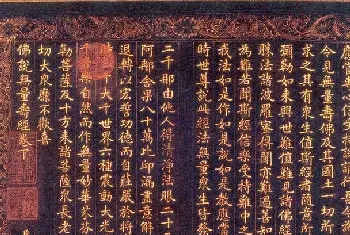 今見無量壽佛及其國土一切所
求之其有衆生值斯經者隨意所
彌勒如來興世難值難見諸佛經
勝法諸波羅蜜得聞亦難遇善知
為難若聞斯經信樂受持難中之
我法如是作如是說如是教應當
時世尊說此經法無量衆生皆發
二千那由他人得清淨法眼二十二
阿那含果八十萬比丘漏盡意解
退轉以弘誓功德而自莊嚴於將
時三千大千世界六種震動大光
千音樂自然而作無量妙華芬芬
勒菩薩及十方來諸菩薩衆長老
切大衆靡不歡喜
佛說無量壽經卷下